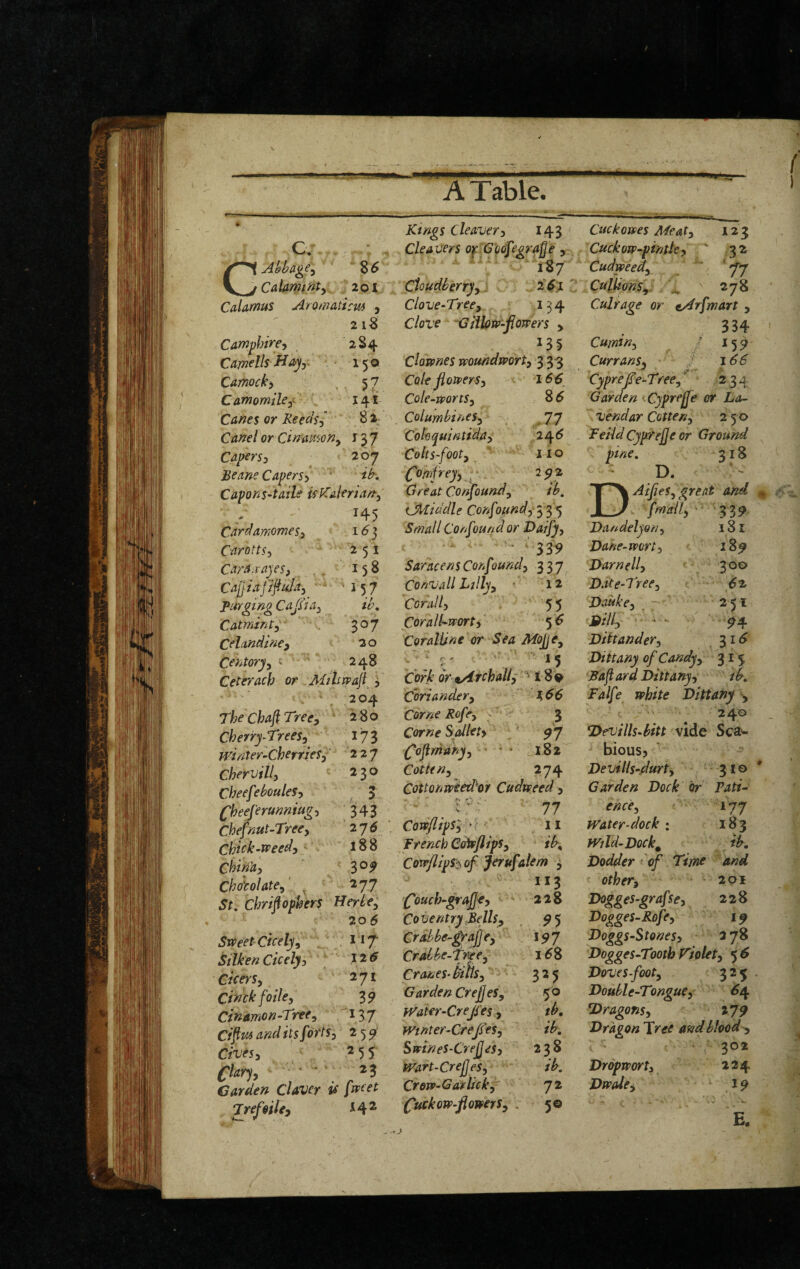 A Table.
C.
CAbbage, 86
Calamint, 201
Calamus Aromaticus,
218
Camphire, 284
Camells Hay, 150
Camock, 57
Camomile, 141
Canes or Reeds, 82
Canel or Cinamon, 137
Capers, 207
Beane Capers, ib.
Capons-taile is Valerian,
145
Cardamomes, 163
Carotts, 251
Carawayes, 158
Cassia fistula, 157
Purging Cassia, ib.
Catmint, 307
Celandine, 20
Centory, 248
Ceterach or Miltwast,
204
The Chast Tree, 280
Cherry-Trees, 173
Winter-Cherries, 227
Chervill, 230
Cheeseboules, 3
Cheeserunning, 343
Chesnut-Tree, 276
Chick-weed, 188
China, 309
Chocolate, 277
St. Christophers Herbe,
206
Sweet Cicely, 117
Silken Cicely, 126
Cicers, 271
Cinck foile, 39
Cinamon-Tree, 137
Cistus and its sorts, 259
Cives, 255
Clary, 23
Garden Claver is sweet
Trefoile, 142
Kings Cleaver, 143
Cleavers or Goosegrasse,
187
Cloudberry, 261
Clove-Tree, 134
Clove Gillow-flowers,
135
Clownes woundwort, 333
Cole flowers, 166
Cole-worts, 86
Columbines, 77
Coloquintida, 246
Colts-foot, 110
Comfrey, 292
Great Confound, ib.
Middle Confound, 335
Small Confound or Daisy,
339
Saracens Confound, 337
Convall Lilly, 12
Corall, 55
Corall-wort, 56
Coralline or Sea Mosse,
15
Cork or Archall, 189
Coriander, 166
Corne Rose, 3
Corne Sallet, 97
Costmary, 182
Cotten, 274
Cottonweed or Cudweed,
77
Cowslips, 11
French Cowslips, ib.
Cowslips of Jerusalem,
113
Couch-grasse, 228
Coventry Bells, 95
Crabbe-grasse, 197
Crabbe-Tree, 168
Cranes-bills, 325
Garden Cresses, 50
Water-Cresses, ib.
Winter-Cresses, ib.
Swines-Cresses, 238
Wart-Cresses, ib.
Crow-Garlick, 72
Cuckow-flowers, 50
Cuckowes Meat, 123
Cuckow-pintle, 32
Cudweed, 77
Cullions, 278
Culrage or Arsmart,
334
Cumin, 159
Currans, 166
Cypresse-Tree, 234
Garden Cypresse or La-
vendar Cotten, 250
Feild Cypresse or Ground
pine. 318
D.
DAisies, great and
small, 339
Dandelyon, 181
Dane-wort, 189
Darnell, 300
Date-Tree, 62
Dauke, 251
Dill, 94
Dittander, 316
Dittany of Candy, 315
Bastard Dittany, ib.
False white Dittany,
240
Devills-bitt vide Sca-
bious,
Devills-durt, 310
Garden Dock or Pati-
ence, 177
Water-dock: 183
Wild-Dock, ib.
Dodder of Time and
other, 201
Dogges-grasse, 228
Dogges-Rose, 19
Doggs-Stones, 278
Dogges-Tooth Violet, 56
Doves-foot, 325
Double-Tongue, 64
Dragons, 279
Dragon Tree and blood,
302
Dropwort, 224
Dwale, 19
E.